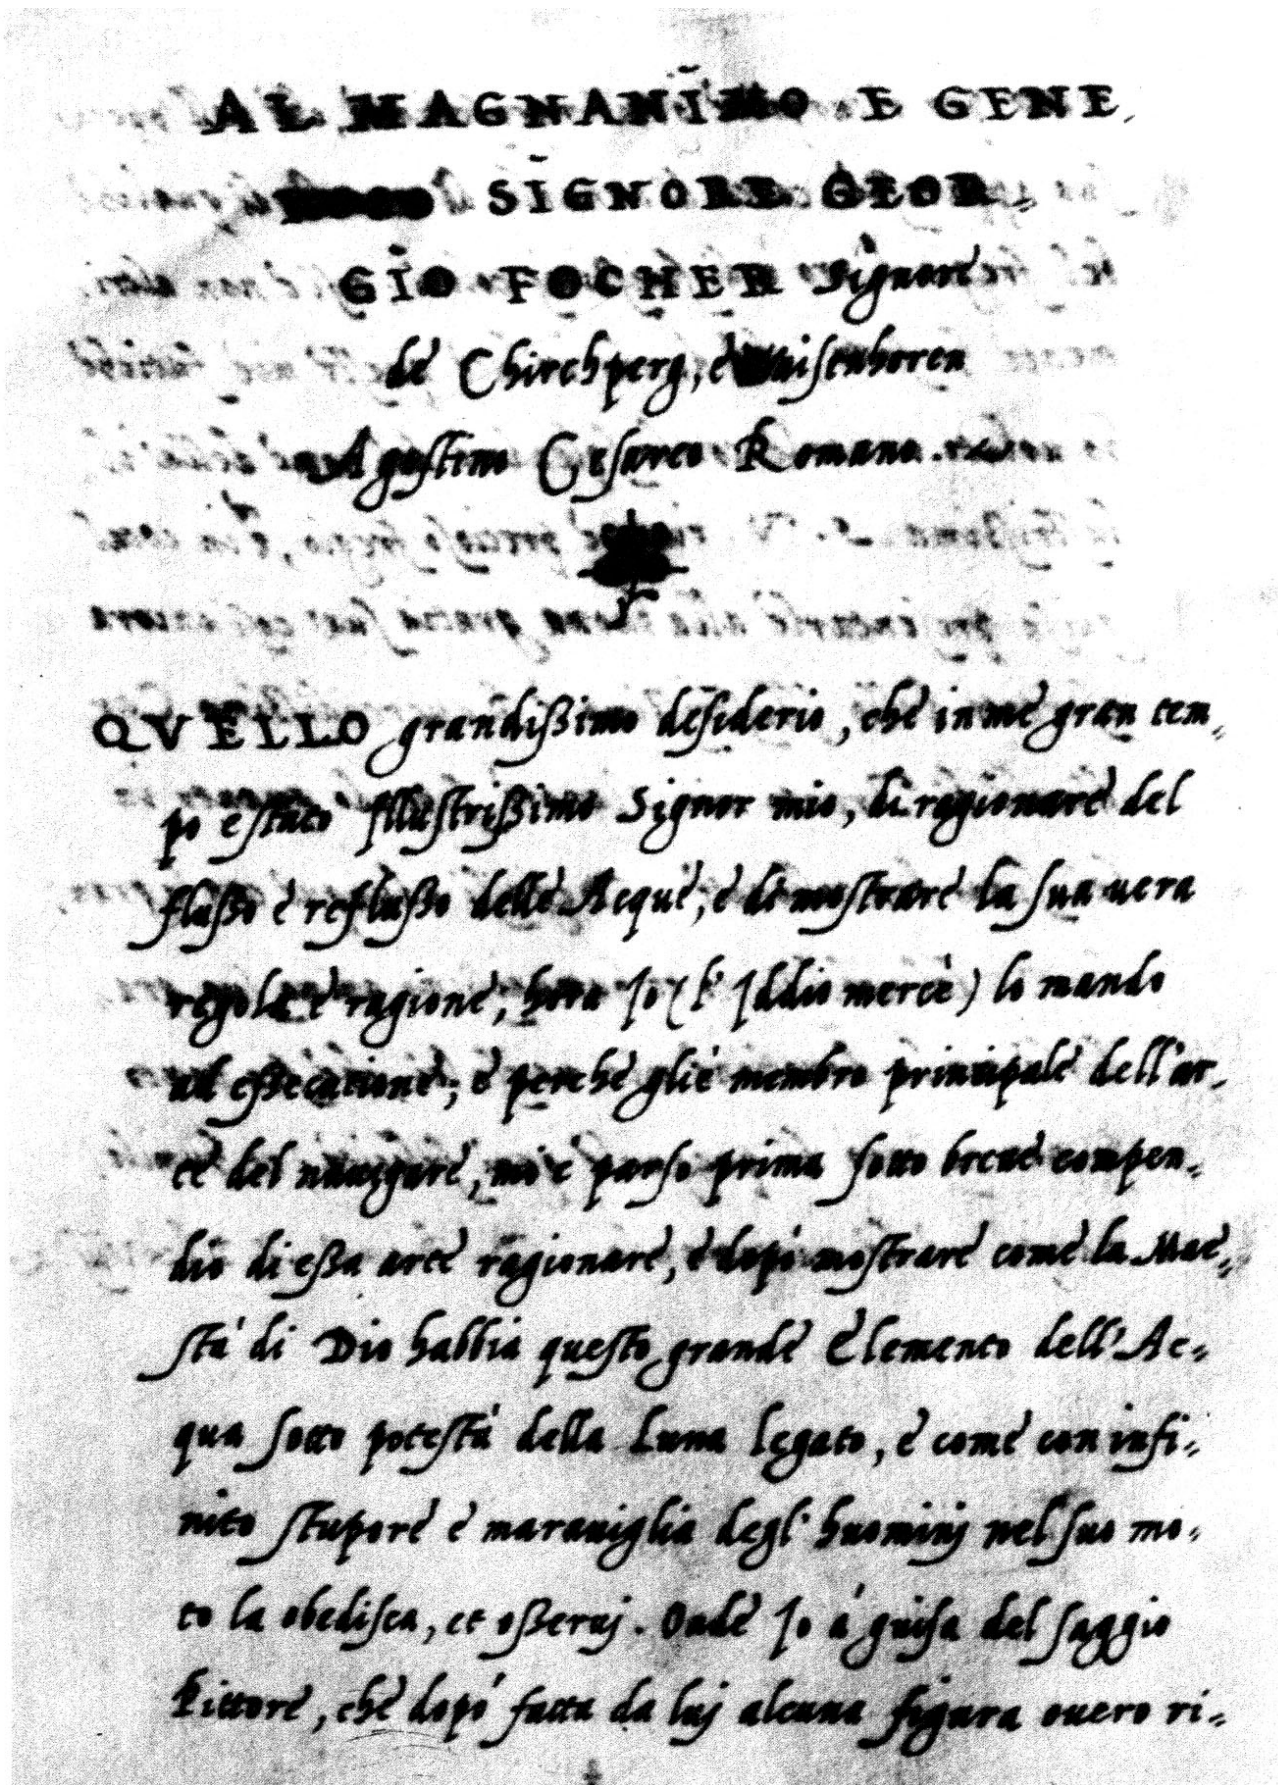 AL MAGNANIMO E GENE,
SIGNORE GIOR=
GIO FOCHER Signore
dè Chirchperg, è Vaisenhoren
Agostino Cesareo Romano.
QVELLO grandißimo desiderio, chè in mè gran tem=
po e stato Illustrißimo Signor mio, di ragionarè del
flußo è reflußo dellè Acquè, è di mostrarè la sua uera
regola è ragionè, hora Io (k̓ Iddio mercè) lo mando
ad eßecutionè; è perchè gliè membro principalè dell'ar=
tè del nauigarè, mi è parso prima sotto breuè compen=
dio di eßa artè ragionarè, è dopò mostrarè comè la Mae=
stà di Dio habbia questo grandè Elemento dell'Ac=
qua sotto potestà della Luna legato, è comè con infi=
nito stuporè è marauiglia degl' huominj nel suo mo=
to la obedisca, et oßeruj. Ondè Io à guisa del saggio
Pittorè, chè dopò fatta da luj alcuna figura ouero ri=